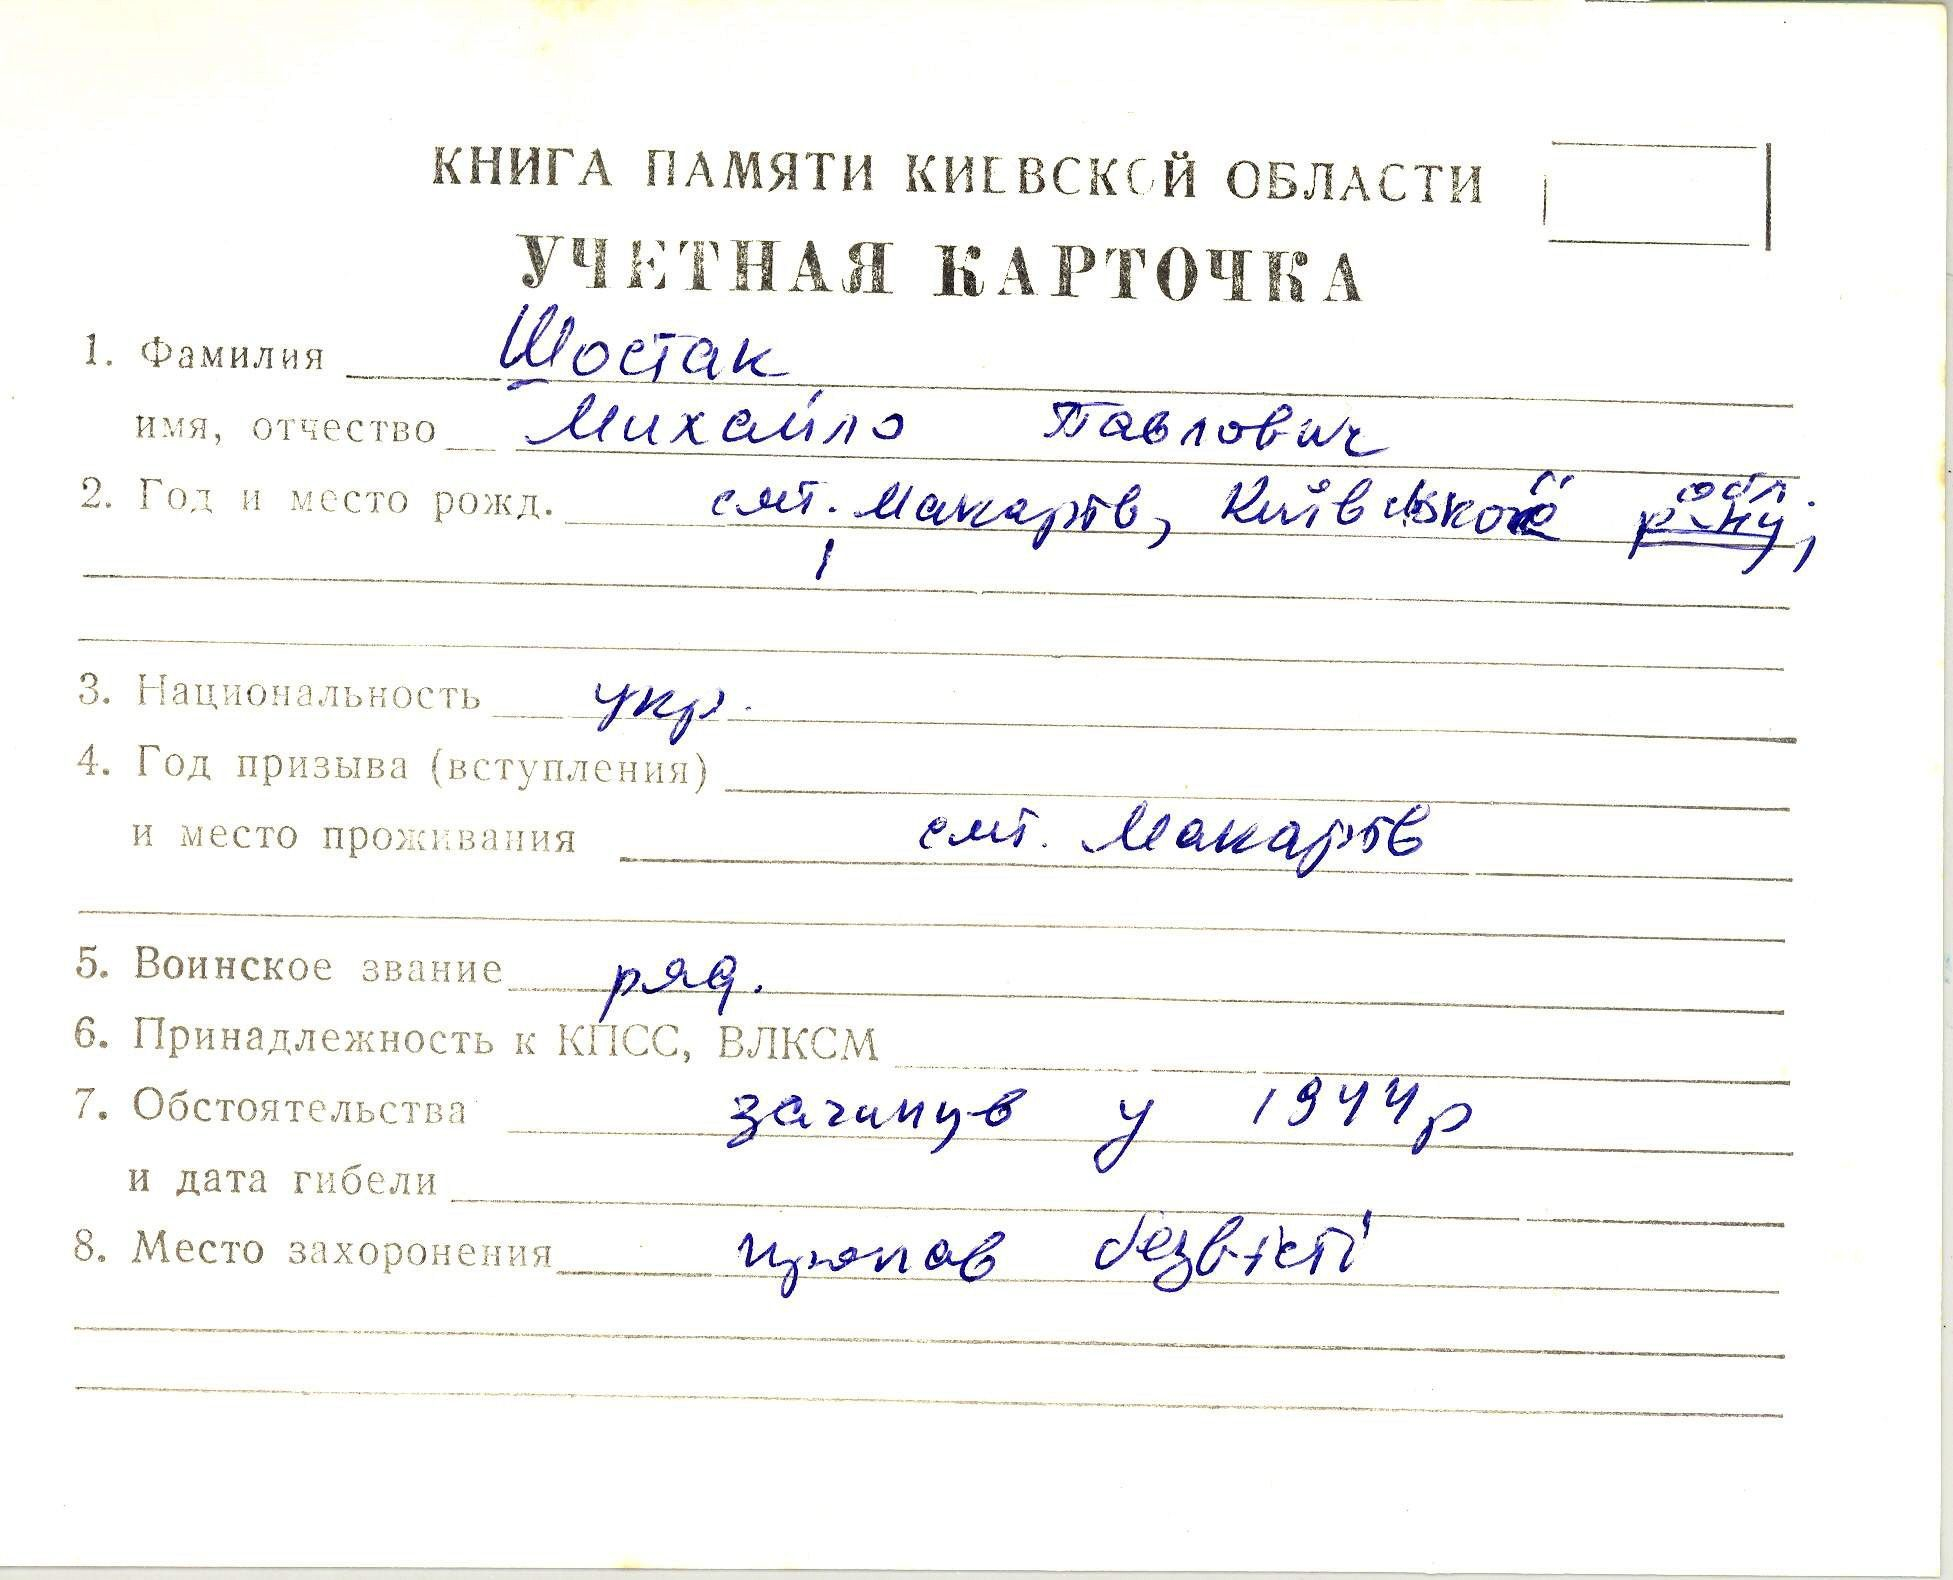 КНИГА ПАМЯТИ КИЕВСКОЙ ОБЛАСТИ
УЧЕТНАЯ КАРТОЧКА
1. Фамилия Шостак
имя, отчество Михайло Павлович
2. Год и место рожд. смт. Макарів, Київської обл. р-ну,
3. Национальность укр.
4. Год призыва (вступления)
и место проживания смт. Макарів
5. Воинское звание ряд.
6. Принадлежность к КПСС, ВЛКСМ
7. Обстоятельства загинув у 1944р
и дата гибели
8. Место захоронения пропав безвісті